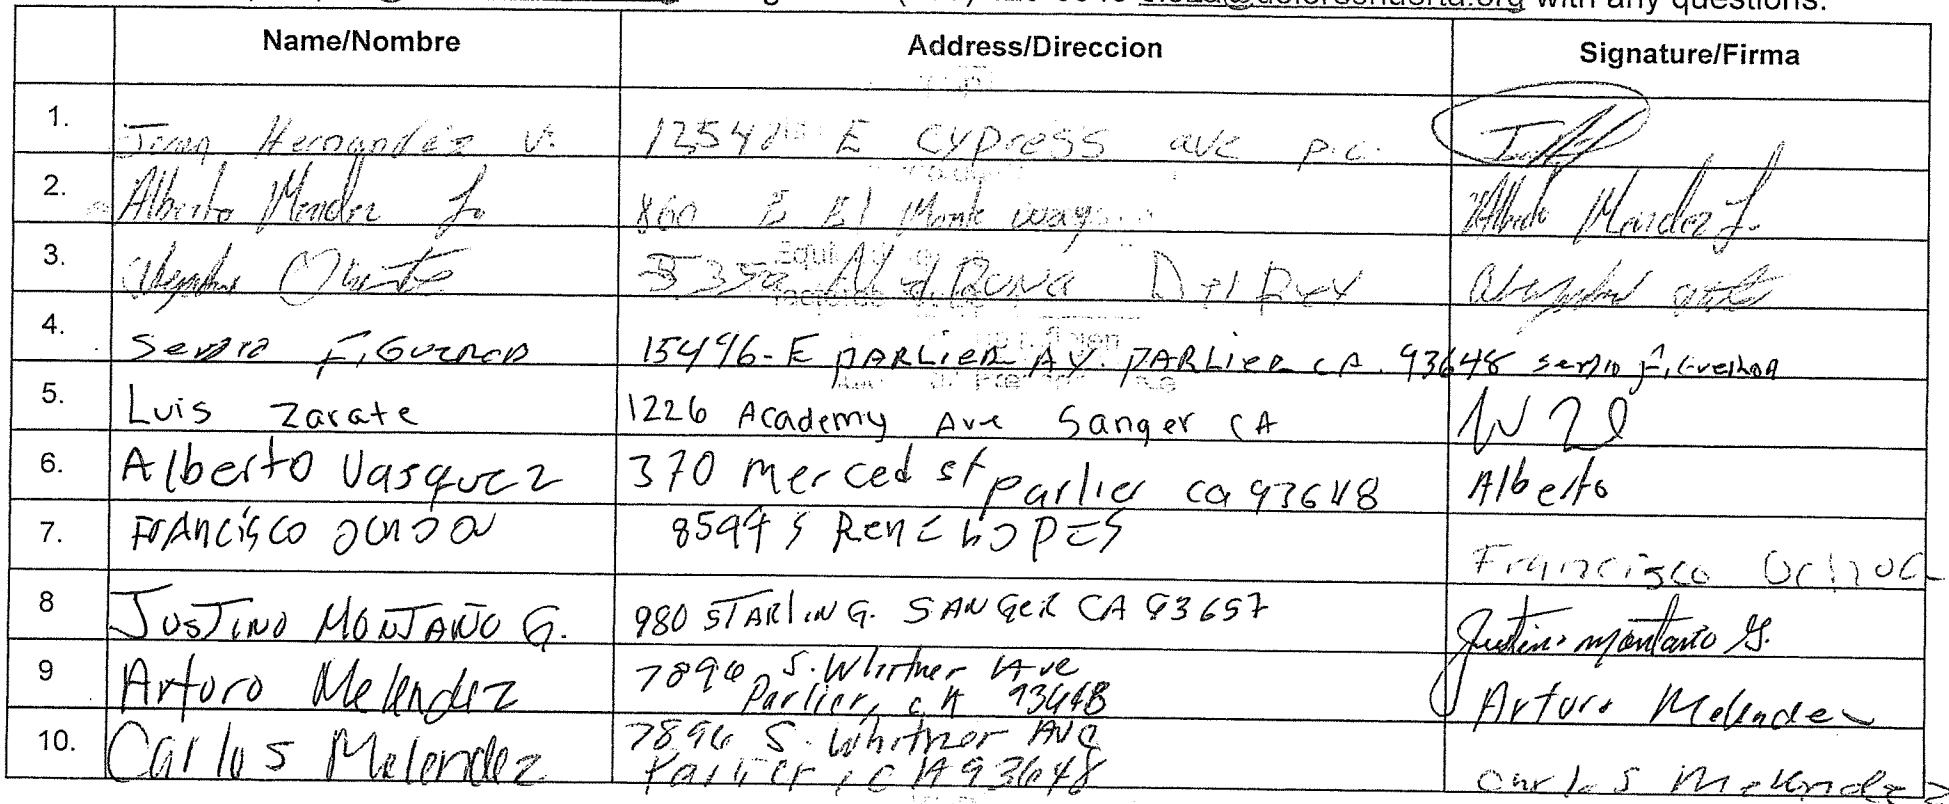 with any questions.
Name/Nombre Address/Direccion Signature/Firma
1. Juan Hernandez V. E Cypress ave p.c.
2. Alberto Mendez J. 860 E El Monte way Alberto Mendez J.
3.
4. Sergio FiGueroa 15496-E PARLIER AV. PARLIER CA. 93648 sergio figueroa
5. Luis Zarate 1226 Academy Ave Sanger CA
6. Alberto Vasquez 370 merced st parlier ca 93648 Alberto
7. FRANCISCO 8594 S RENE Francisco Ochoa
8 JUSTINO MONTAÑO G. 980 STARLING. SANGER CA 93657 Justino montaño G.
9 Arturo Melendez 7896 S. Whitner Ave
Parlier, CA 93648 Arturo Melendez
10. Carlos Melendez 7896 S. Whitner Ave
Parlier, CA 93648 Carlos Melendez